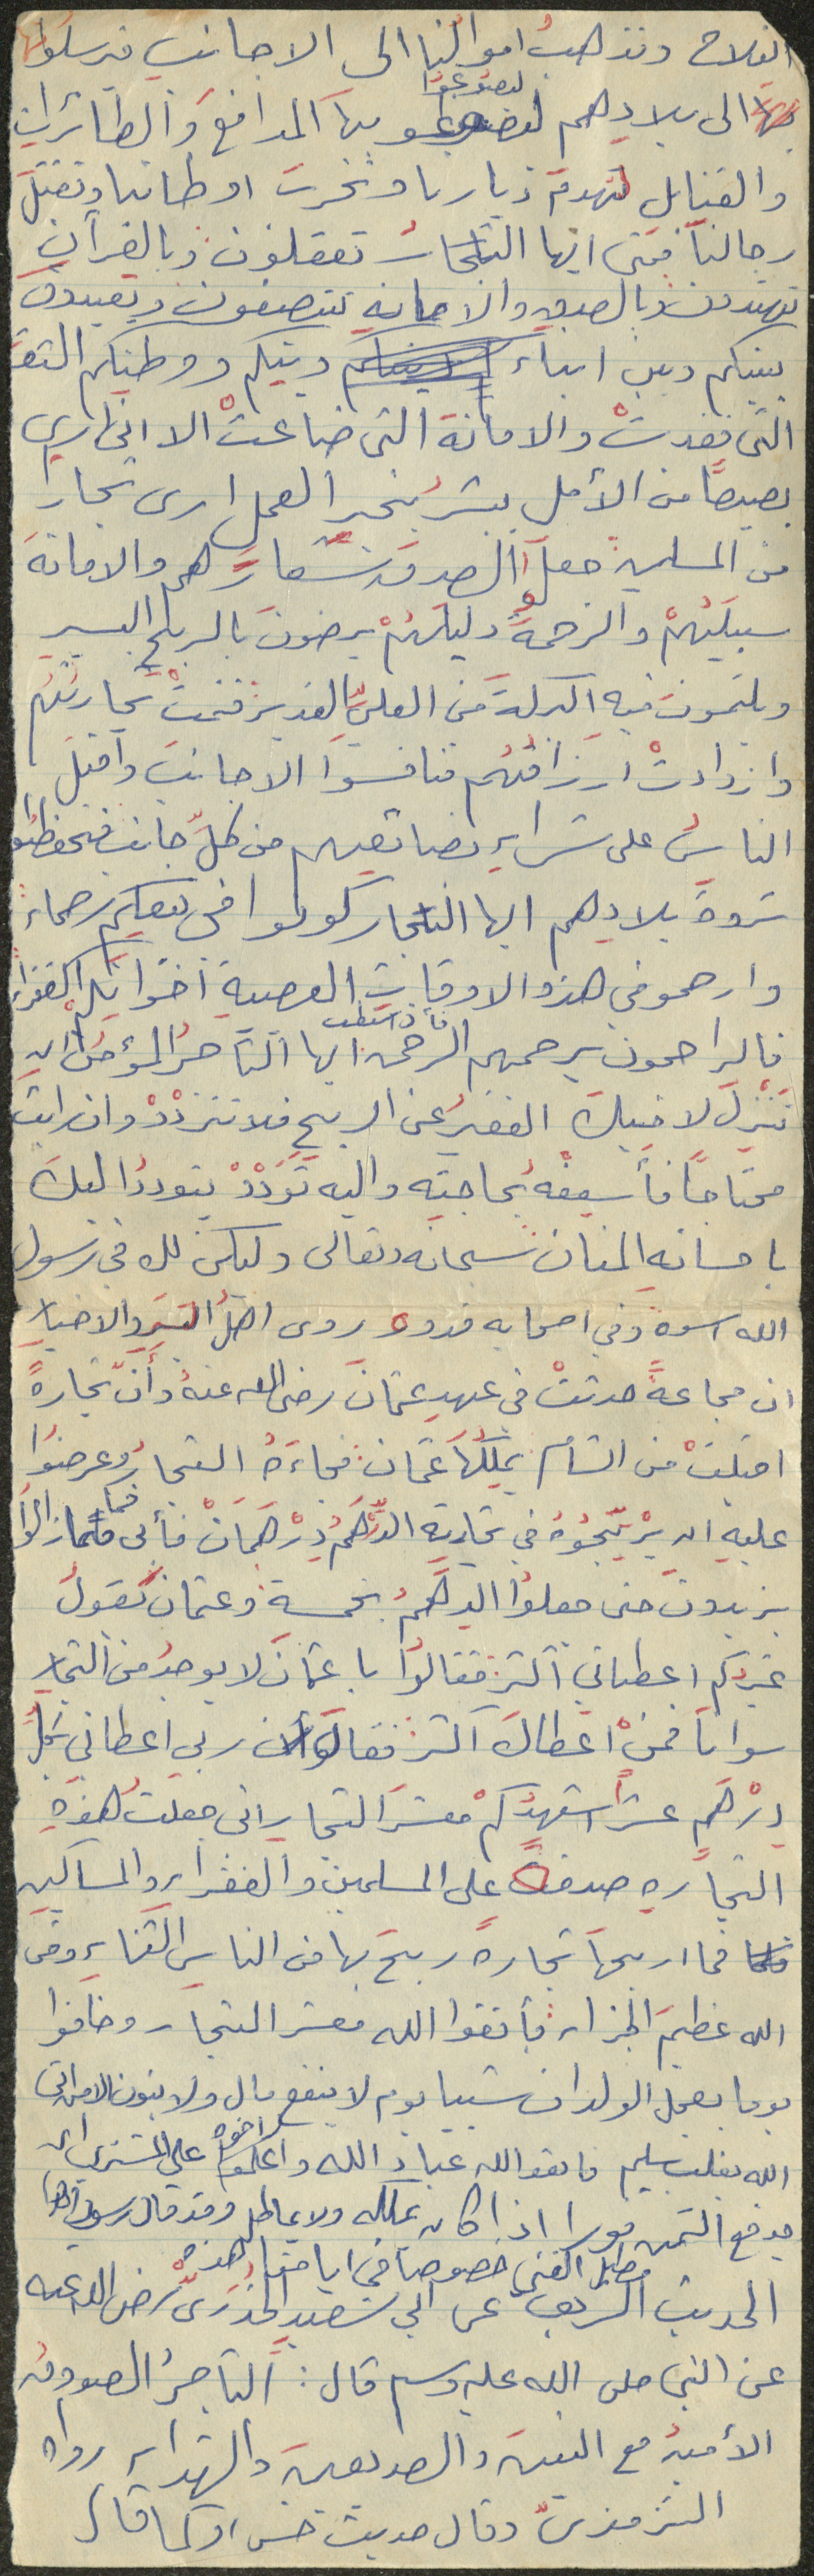 الفلاح وتذهب اموالنا الى الاجانب فيرسلونها
الى بلادهم ليصنعوا بها المدافع والطائرات
والقنابل لتهدم ديارنا وتخرب اوطاننا وتقتل
رجالنا فمتى ايها التجار تعقلون وبالقرآن
تهتدون وبالصدق والامانة تتصفون وتعيدون
بينكم وبين ابناء دينكم ووطنكم الثقة
التي فقدت والامانة التي ضاعت الا اني ارى
بصيصا من الأمل يبشر بخير العمل ارى تجارا
من المسلمين جعلوا الصدق شعارهم والامانة
سبيلهم والرحمة دليلهم يرضون بالربح اليسير
ويلتمسون فيه البركة من العلي القدير فنمت تجارتهم
وازدادت ارزاقهم فنافسوا الاجانب واقبل
الناس على شراء بضائعهم من كل جانب فحفظوا
ثروة بلادهم ايها التجار كونوا في بيعكم رحماء
وارحموا في هذه الاوقات العصيبة اخوانكم الفقراء
فالراحمون يرحمهم الرحمن ايها التاجر المؤمن ان
تنزل لاخيك الفقير عن الربح فلا تتردد وان رأيت
محتاجا فأسعفه بحاجته واليه تودد يتودد اليك
باحسانه المنان سبحانه وتعالى وليكن لك في رسول
الله اسوة وفي اصحابه قدوة روى اهل السير والاخبار
ان مجاعة حدثت في عهد عثمان رضي الله عنه وأن تجارة
اقبلت من الشام يملكها عثمان فجاءه التجار وعرضوا
عليه ان يربحوه في تجارته الدرهم درهمان فأبى فما زالوا
يزيدون حتى جعلوا الدرهم بخمسة وعثمان يقول
غيركم اعطاني اكثر فقالوا يا عثمان لا يوجد من التجار
سوانا فمن اعطاك اكثر فقال ان ربي اعطاني بكل
درهم عشرا اشهدكم معشر التجار اني جعلت هذه
التجارة صدقة على المسلمين والفقراء والمساكين
فما اربحها تجارة ربح بها من الناس الثناء ومن
الله عظيم الجزاء فأتقوا الله معشر التجار وخافوا
يوما يجعل الولدان شيبا يوم لا ينفع مال ولا بنون الا من اتى
الله بقلب سليم فاتقوا الله عباد الله واعلموا على المشتري ان
يدفع الثمن فورا اذا كان يملكه ولا يماطل وقد قال رسول الله
مطل الغني خصوصا في ايامنا هذه
الحديث الشريف عن ابي سعيد الخدري رضي الله عنه
عن النبي صلى الله عليه وسلم قال: التاجر الصدوق
الأمين مع النبيين والصديقين والشهداء رواه
الترمذي وقال حديث حسن او كما قال